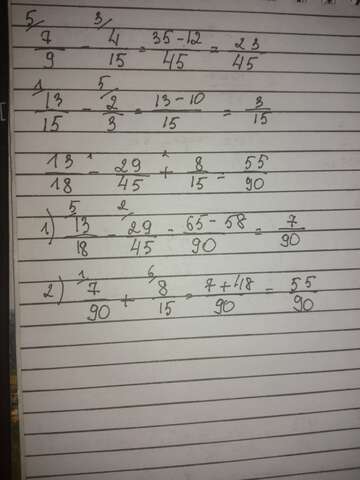 5/ 7/9 - 3/ 4/15 = 35-12/45 = 23/45
1/ 13/15 - 5/ 2/3 = 13-10/15 = 3/15
13/18 -¹ 29/45 +² 8/15 = 55/90
1) 5/ 13/18 - 2/ 29/45 - 65-58/90 = 7/90
2) 1/ 7/90 + 6/ 8/15 = 7+48/90 = 55/90